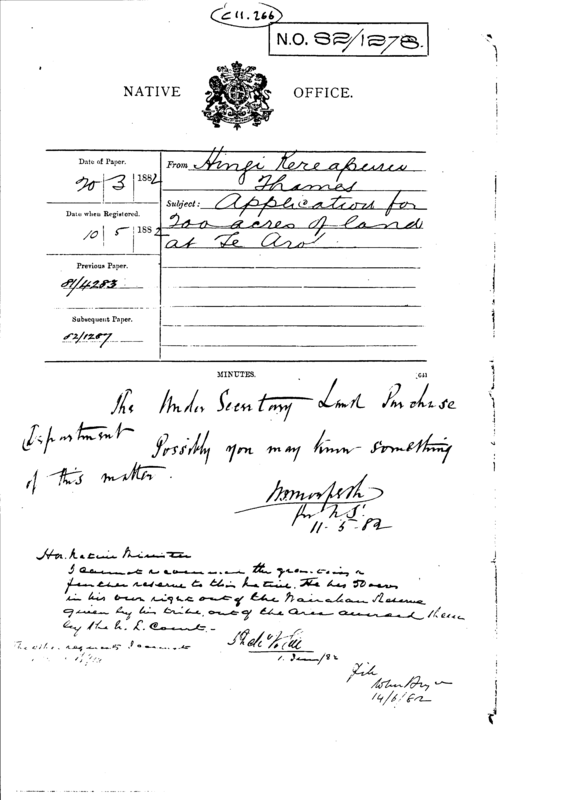 C 11. 266
N.O. 82/1278.
NATIVE OFFICE.
Date of Paper.
20 3 1882
Date when Registered.
10 5 1882
Previous Paper.
81/4283
Subsequent Paper.
82/1287
From Hingi
Thames
Subject: Application for
200 acres of land
at Te Aro
MINUTES.
The Under Secretary Land Purchase
Department Possibly you may know something
of this matter.
11-5-82
Hon. Native Minister
I cannot recommend the granting a
further reserve to this Native. He has 50 acres
in his own right out of the Reserve
given by his tribe, out of the area awarded them
by the N. L. Court.-
1. June/82
The other requests I cannot
File
14/6/82